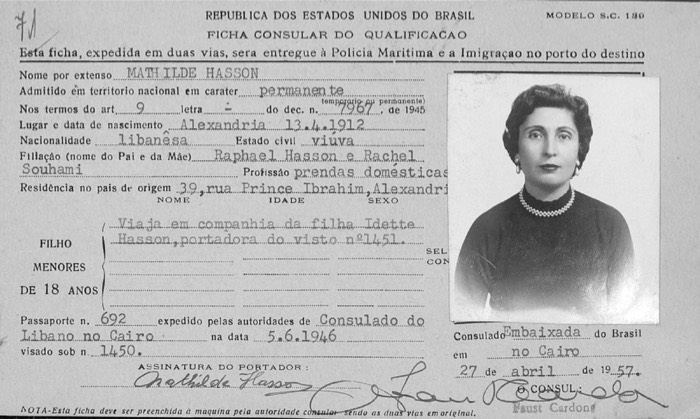 71
REPUBLICA DOS ESTADOS UNIDOS DO BRASIL
MODELO S.C. 139
FICHA CONSULAR DO QUALIFICACAO
Esta ficha, expedida em duas vias, sera entregue à Policia Maritima e a Imigraçao no porto do destino
Nome por extenso MATHILDE HASSON
Admitido em territorio nacional em carater permanente
(temporario ou permanente)
Nos termos do art. 9 letra - do dec. n. 7967, de 1945
Lugar e data de nascimento Alexandria 13.4.1912
Nacionalidade libanêsa Estado civil viuva
Filiação (nome do Pai e da Mãe) Raphael Hasson e Rachel
Souhami Profissão prendas domésticas
Residência no pais de origem 39, rua Prince Ibrahim, Alexandri
NOME IDADE SEXO
FILHO MENORES DE 18 ANOS
Viaja em companhia da filha Idette
Hasson, portadora do visto nº1451.
SEL
CON
Passaporte n. 692 expedido pelas autoridades de Consulado do
Libano no Cairo na data 5.6.1946
visado sob n. 1450.
Consulado Embaixada do Brasil
em no Cairo
27 de abril de 1957.
ASSINATURA DO PORTADOR :
Mathilde Hasson
O CONSUL:
Faust Cardona
NOTA-Esta ficha deve ser preenchida à maquina pela autoridade consular sendo as duas vias em original.